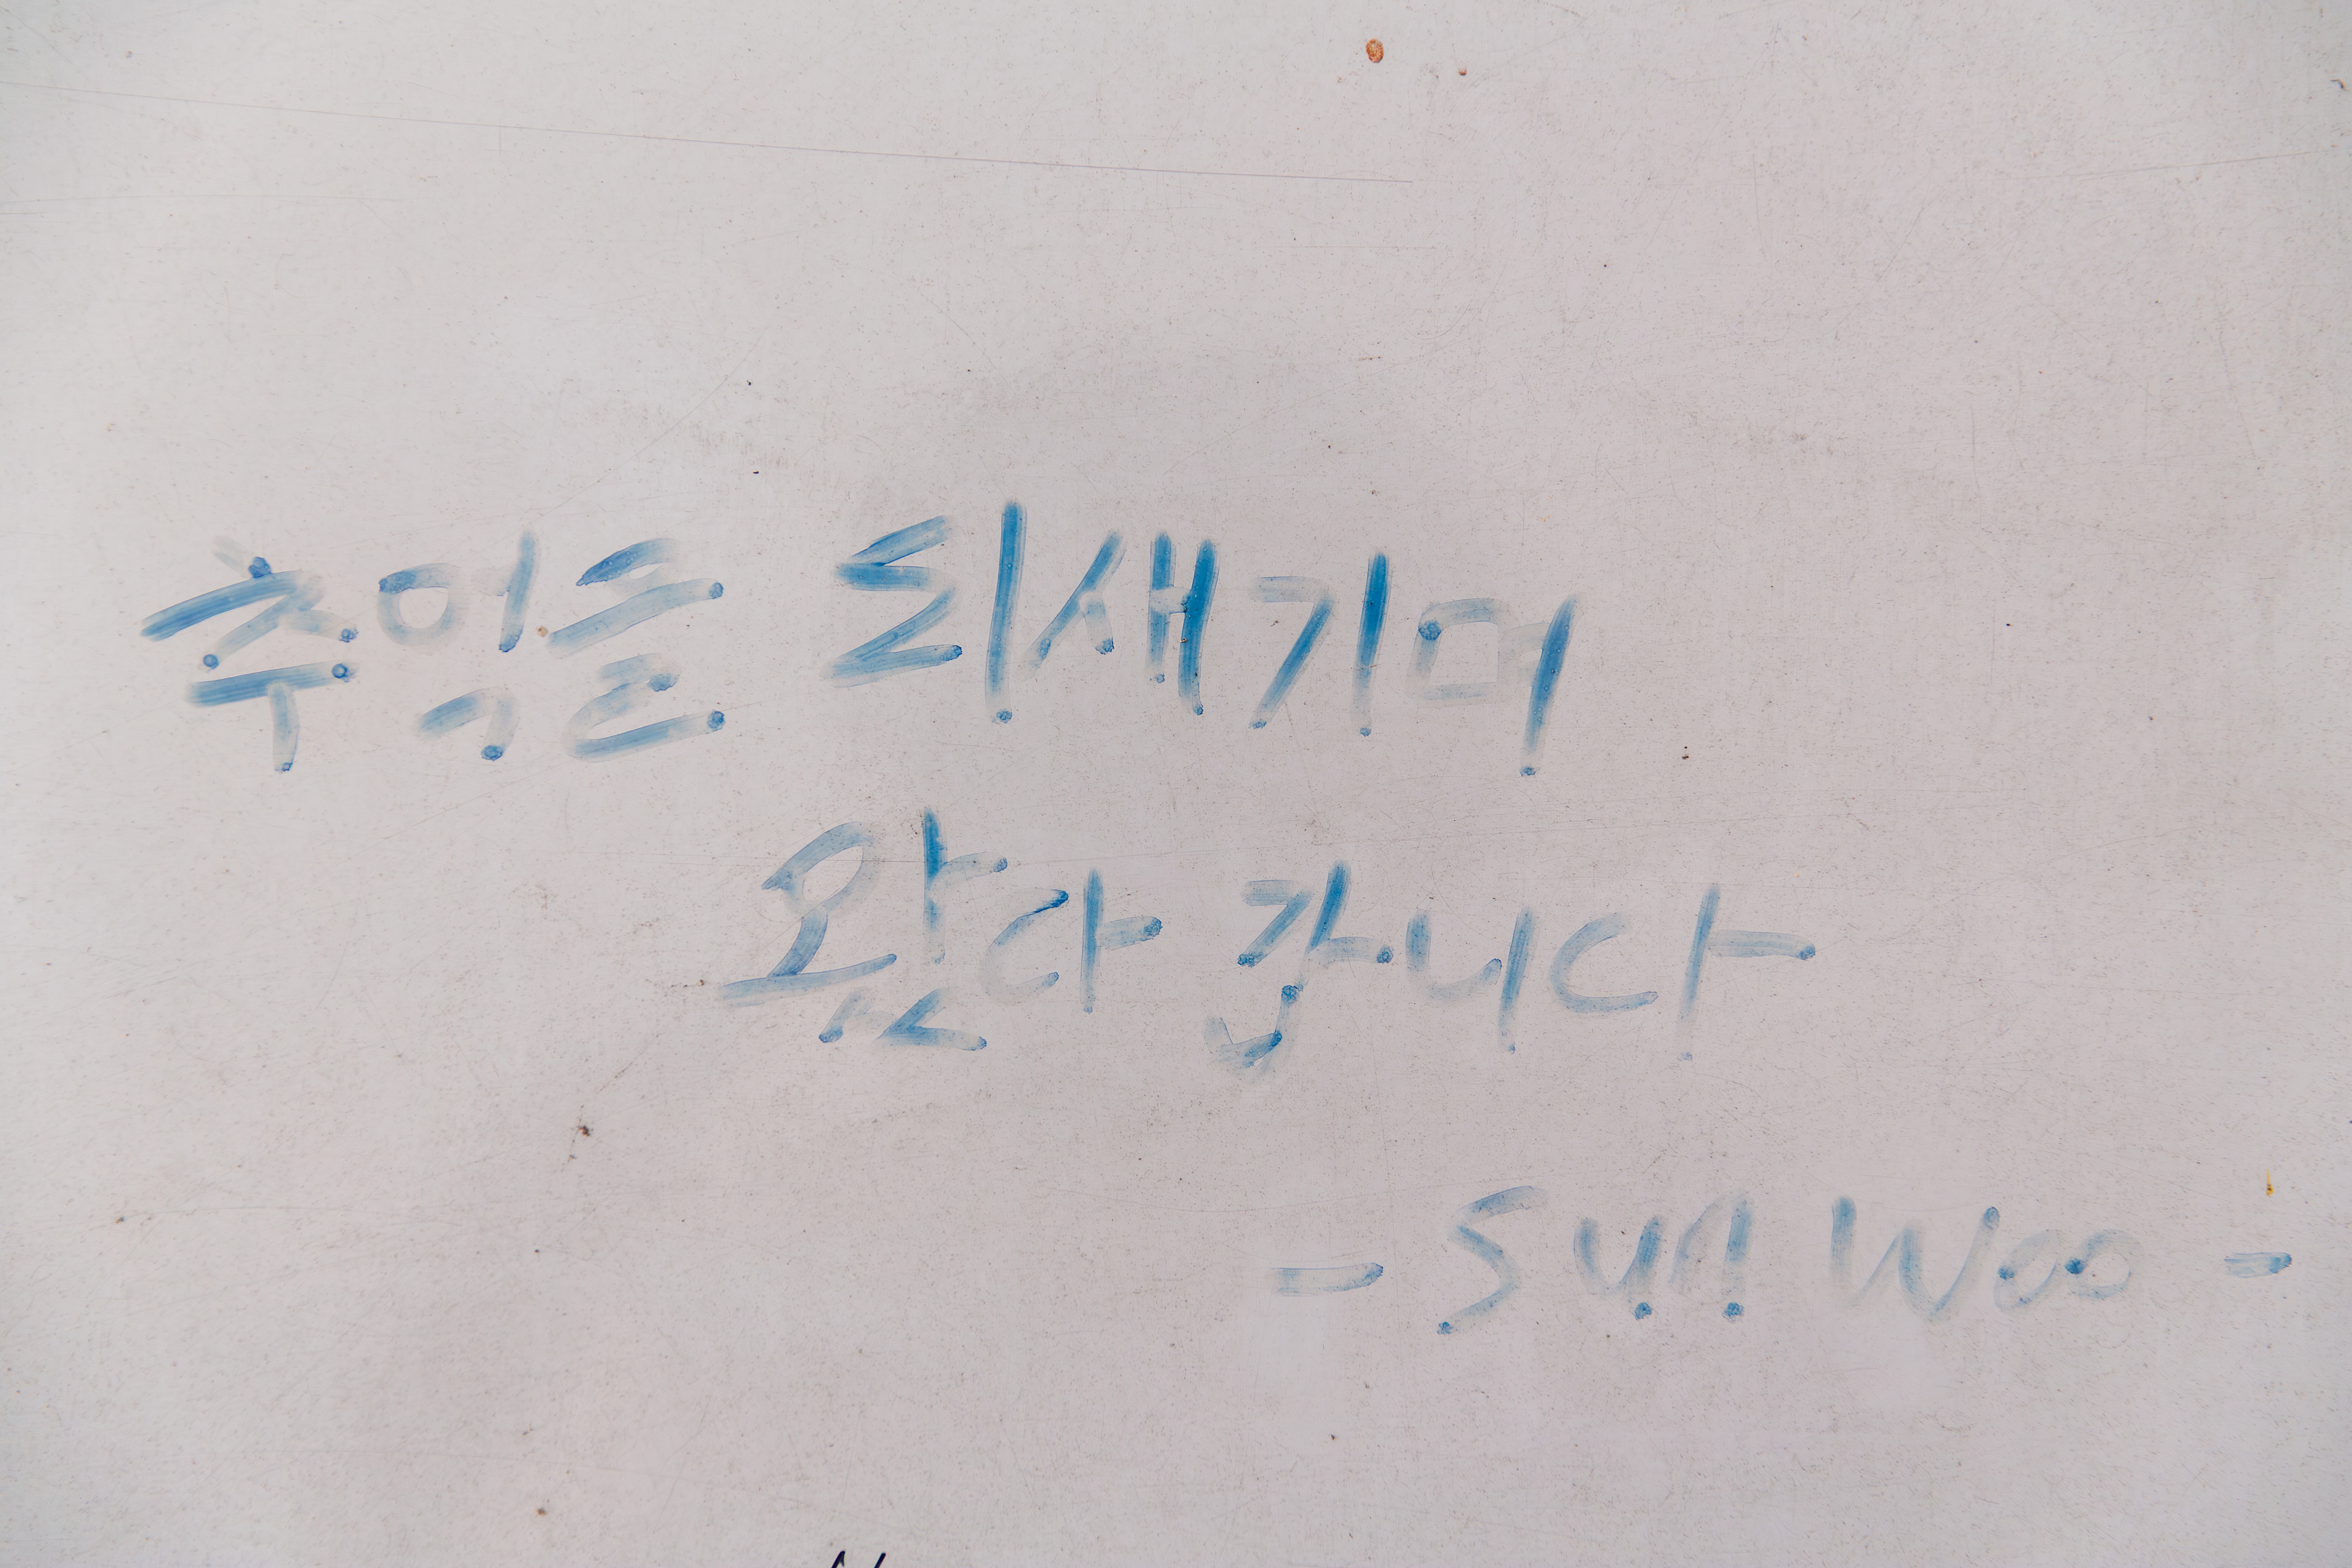 추억을 되새기며
왔다 갑니다
- Sun Woo -